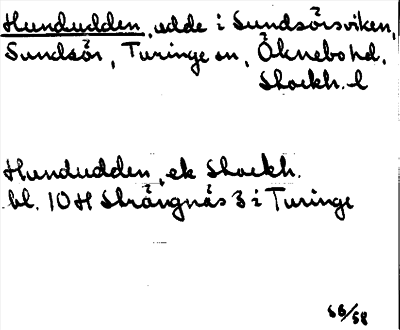 Hundudden, udde i Sundsörsviken,
Sundsör, Turinge sn, Öknebo hd,
Stockh. l
Hundudden, ek Stockh.
bl. 10 H Strängnäs 3 i Turinge
SB/58